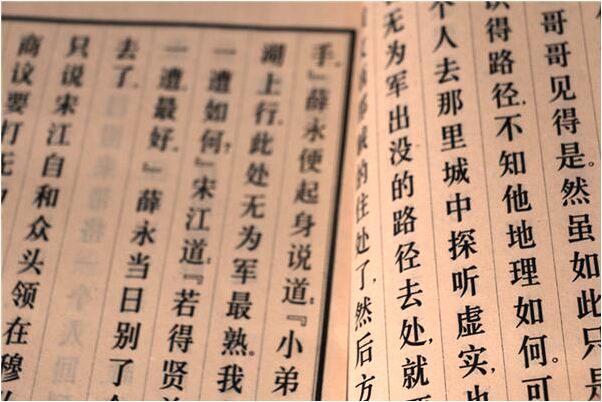 哥哥见得是。然虽如此只是
识得路径。不知他地理如何。可
个人去那里城中探听虚实,也
无为军出没的路径去处,就要
的住处了,然后方
手。』薛永便起身说道:『小弟
湖上行。此处无为军最熟。我
一遭如何?』宋江道:『若得贤
一遭,最好。』薛永当日别了
去了。
只说宋江自和众头领在穆
商议要打无